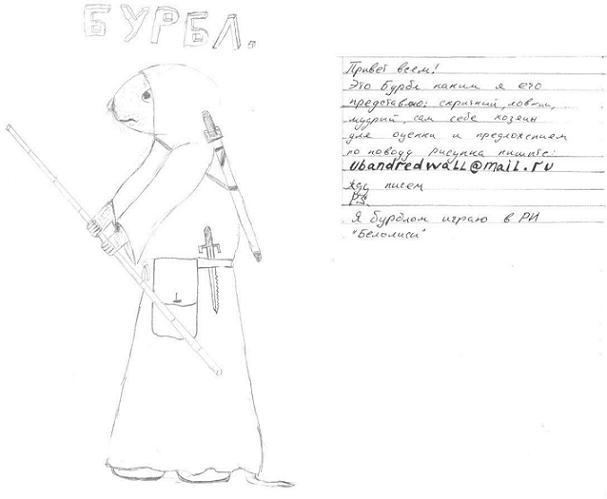 БУРБЛ.
Привет всем!
Это Бурбл каким я его
представляю: скрытный, ловкий,
мудрый, сам себе хозяин
для оценки и предложением
по поводу рисунка пишите:
ubandredwall@mail.ru
жду писем
P.S.
Я бурблом играю в РИ
"Белолисы"